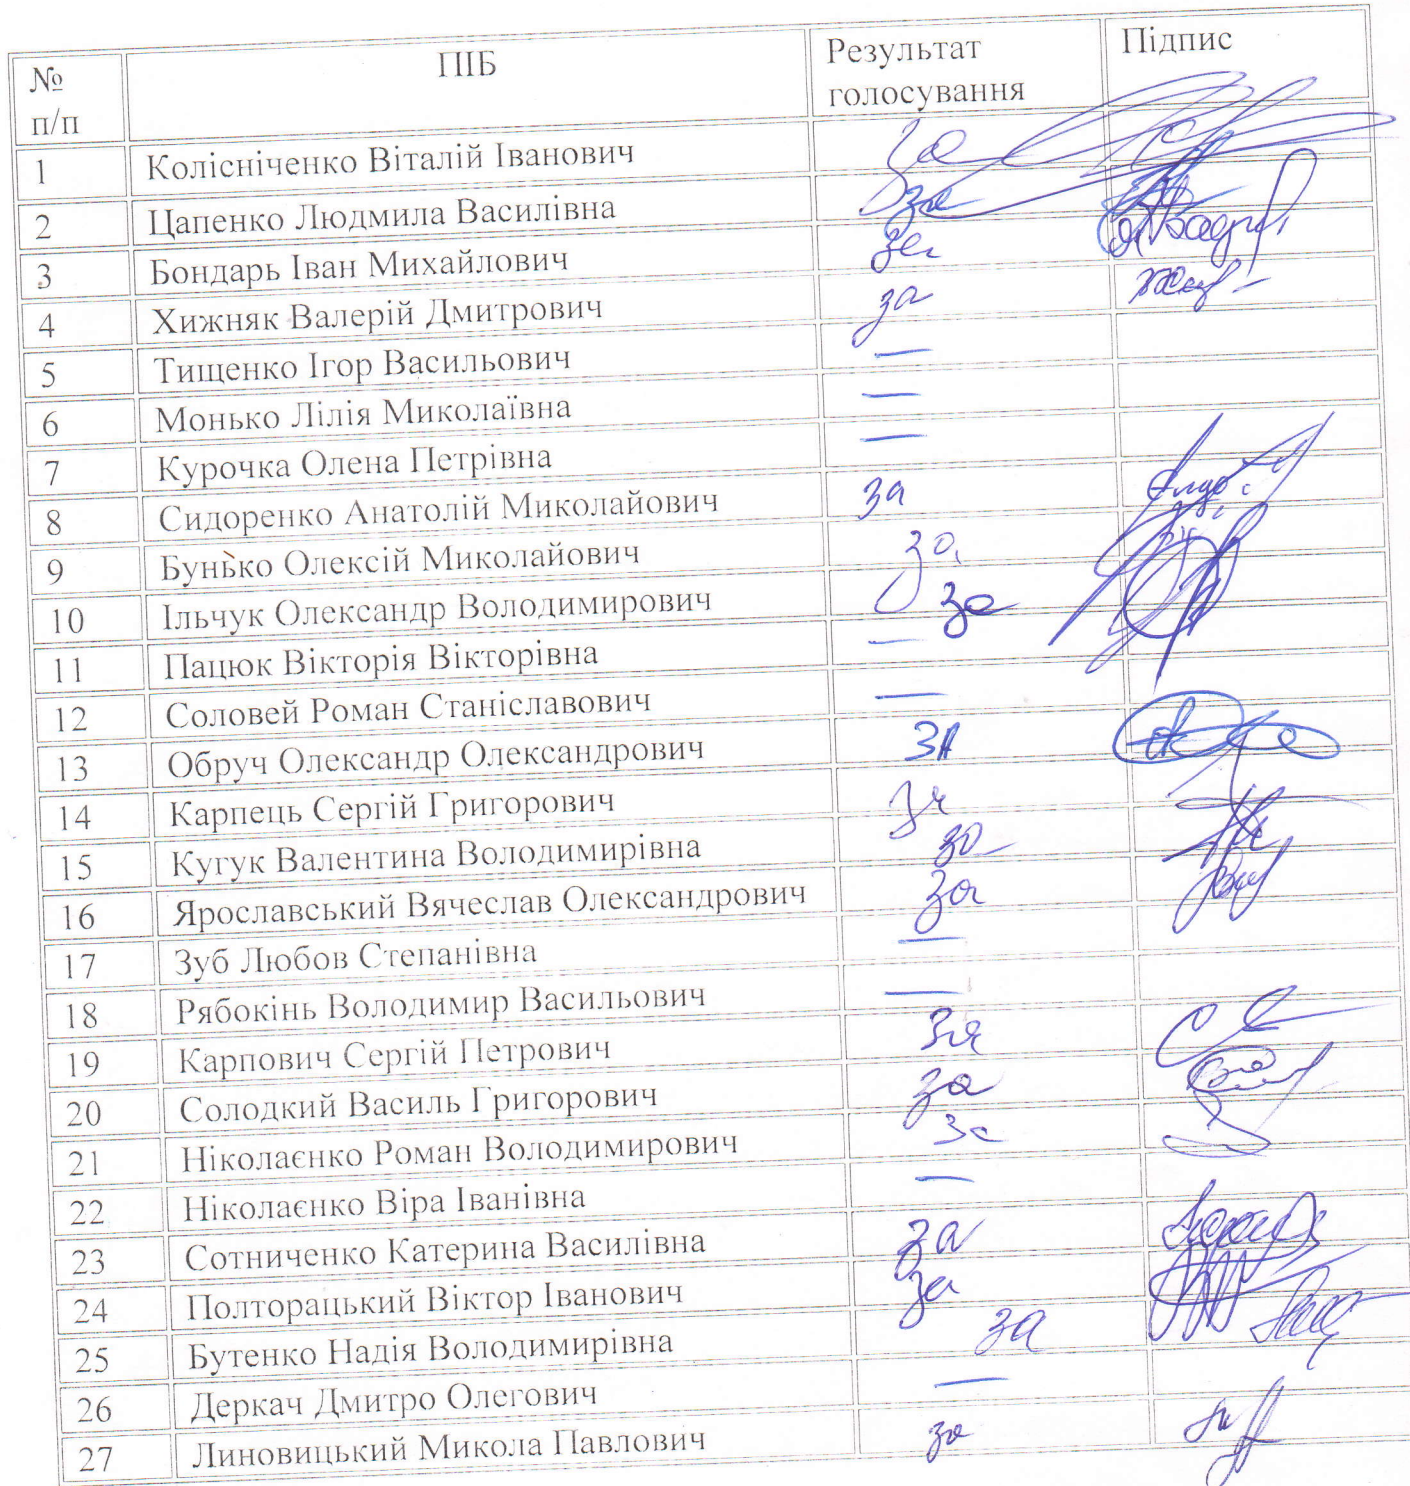 № п/п ПІБ Результат голосування Підпис
1 Колісніченко Віталій Іванович за
2 Цапенко Людмила Василівна за
3 Бондарь Іван Михайлович за
4 Хижняк Валерій Дмитрович за
5 Тищенко Ігор Васильович —
6 Монько Лілія Миколаївна —
7 Курочка Олена Петрівна —
8 Сидоренко Анатолій Миколайович за
9 Бунько Олексій Миколайович за
10 Ільчук Олександр Володимирович за
11 Пацюк Вікторія Вікторівна —
12 Соловей Роман Станіславович —
13 Обруч Олександр Олександрович ЗА
14 Карпець Сергій Григорович за
15 Кугук Валентина Володимирівна за
16 Ярославський Вячеслав Олександрович за
17 Зуб Любов Степанівна —
18 Рябокінь Володимир Васильович —
19 Карпович Сергій Петрович За
20 Солодкий Василь Григорович за
21 Ніколаєнко Роман Володимирович За
22 Ніколаєнко Віра Іванівна —
23 Сотниченко Катерина Василівна за
24 Полторацький Віктор Іванович за
25 Бутенко Надія Володимирівна за
26 Деркач Дмитро Олегович —
27 Линовицький Микола Павлович за